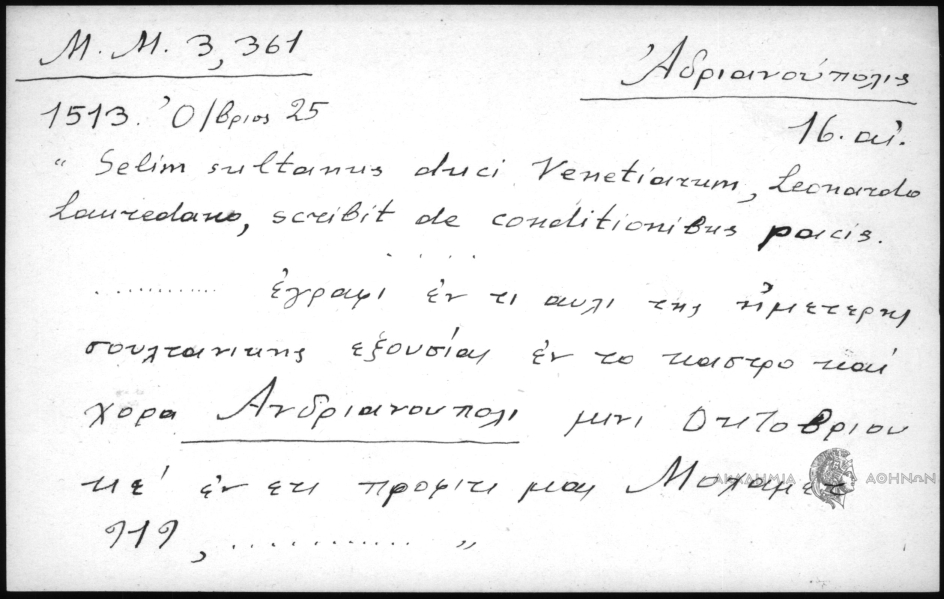 M. M. 3, 361
Ἀδριανούπολις
1513. Ὀ/βριος 25
16. αἰ.
“ Selim sultanus duci Venetiarum, Leonardo
Lauredano, scribit de conditionibus pacis.
. . . .
............ ἐγραφι ἐν τι αυλι της ἡμετερης
σουλτανικης εξουσίας ἐν το καστρο καί
χορα Ανδριανουπολι μινι Οκτοβριου
κε' ἐν ετι προφιτι μας Μοχαμετ
919, ............ ”
ΑΚΑΔΗΜΙΑ ΑΘΗΝΩΝ